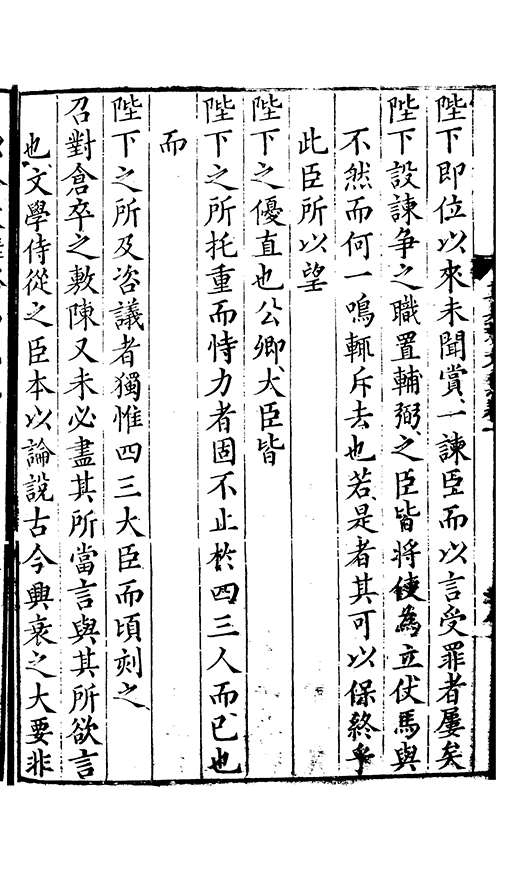 陛下即位以來未聞賞一諫臣而以言受罪者屢矣
陛下設諫争之職置輔弼之臣皆將使為立仗馬與
不然而何一鳴輒斥去也若是者其可以保終乎
此臣所以望
陛下之優直也公卿大臣皆
陛下之所托重而恃力者固不止於四三人而已也
而
陛下之所及咨議者獨惟四三大臣而頃刻之
召對倉卒之敷陳又未必盡其所當言與其所欲言
也文學侍從之臣本以論說古今興衰之大要非